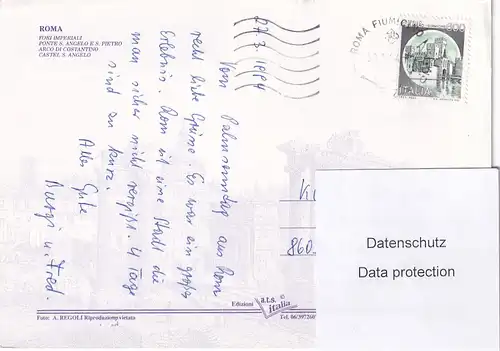 ROMA
FORI IMPERIALI
PONTE S. ANGELO E S. PIETRO
ARCO DI COSTANTINO
CASTEL S. ANGELO
27.3.1994
Vom Palmsonntag aus Rom
recht liebe Grüsse. Es war ein großes
Erlebnis. Rom ist eine Stadt die
man sicher nicht vergißt. 4 Tage
sind zu kurz.
Alles Gute
Burgi u. Fred.
ROMA FIUMICINO
800
ITALIA
860
Datenschutz
Data protection
Edizioni a.t.s. © italia
Foto: A. REGOLI Riproduzione vietata
Tel. 06/397260